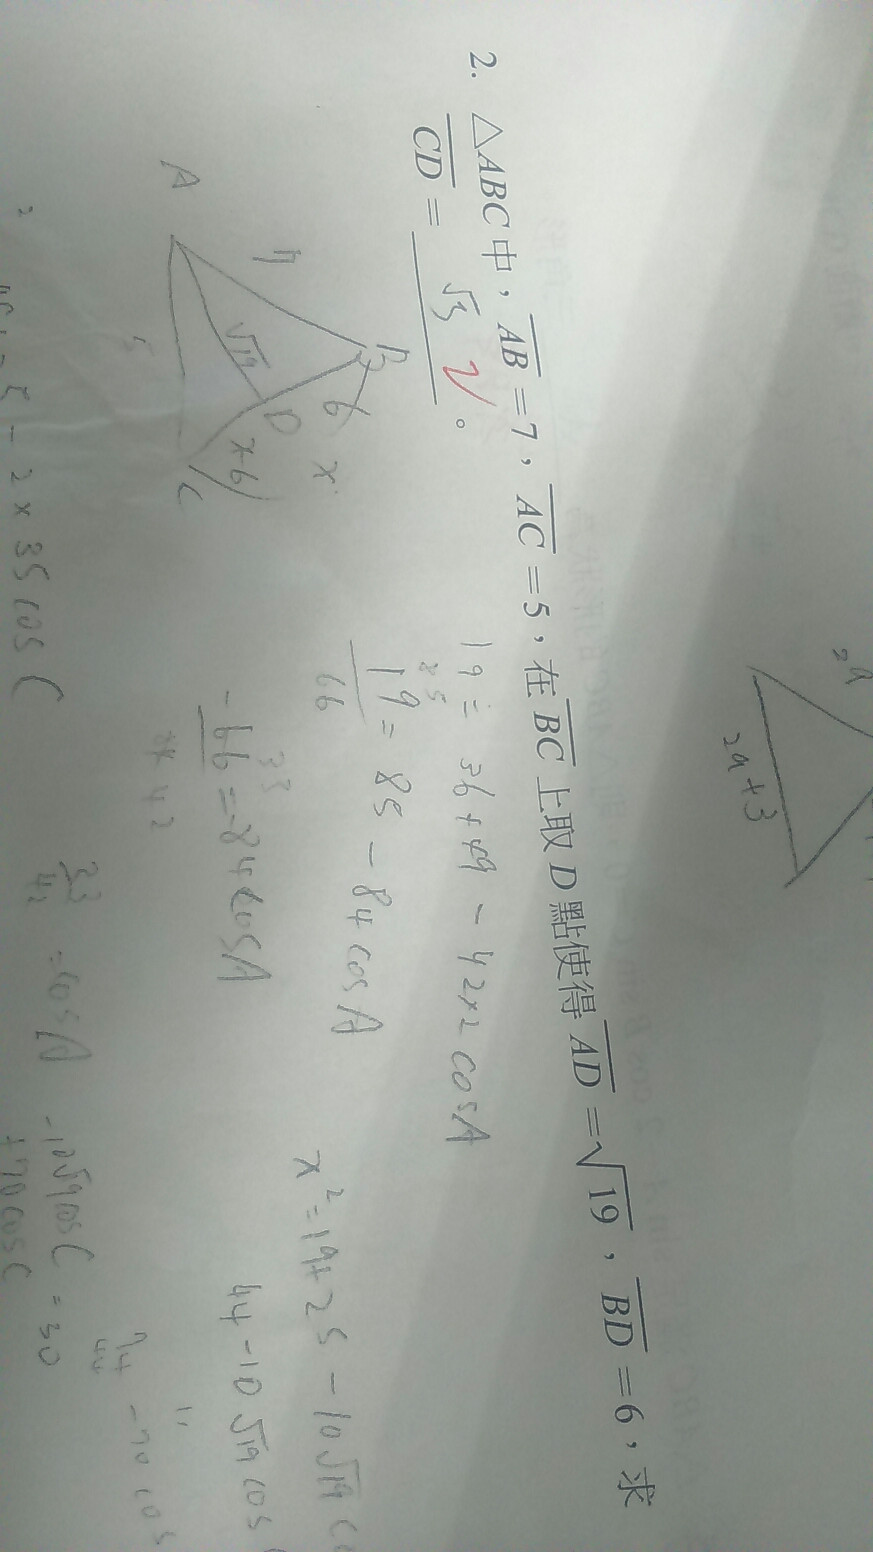 2. △ABC中，AB=7，AC=5，在BC上取D點使得AD=√19，BD=6，求
CD= √3 。
2a
2a+3
A
B
7
6
x
√19
D
x-6
5
C
19=36+49-42×2cosA
19=85-84cosA
85
66
-66=-84cosA
33
42
33/42=cosA
x²=19+25-10√19 c
44-10√19 cos
-10√19cosC=30
+70cosC
74
44
-70cos
5-2×35cosC